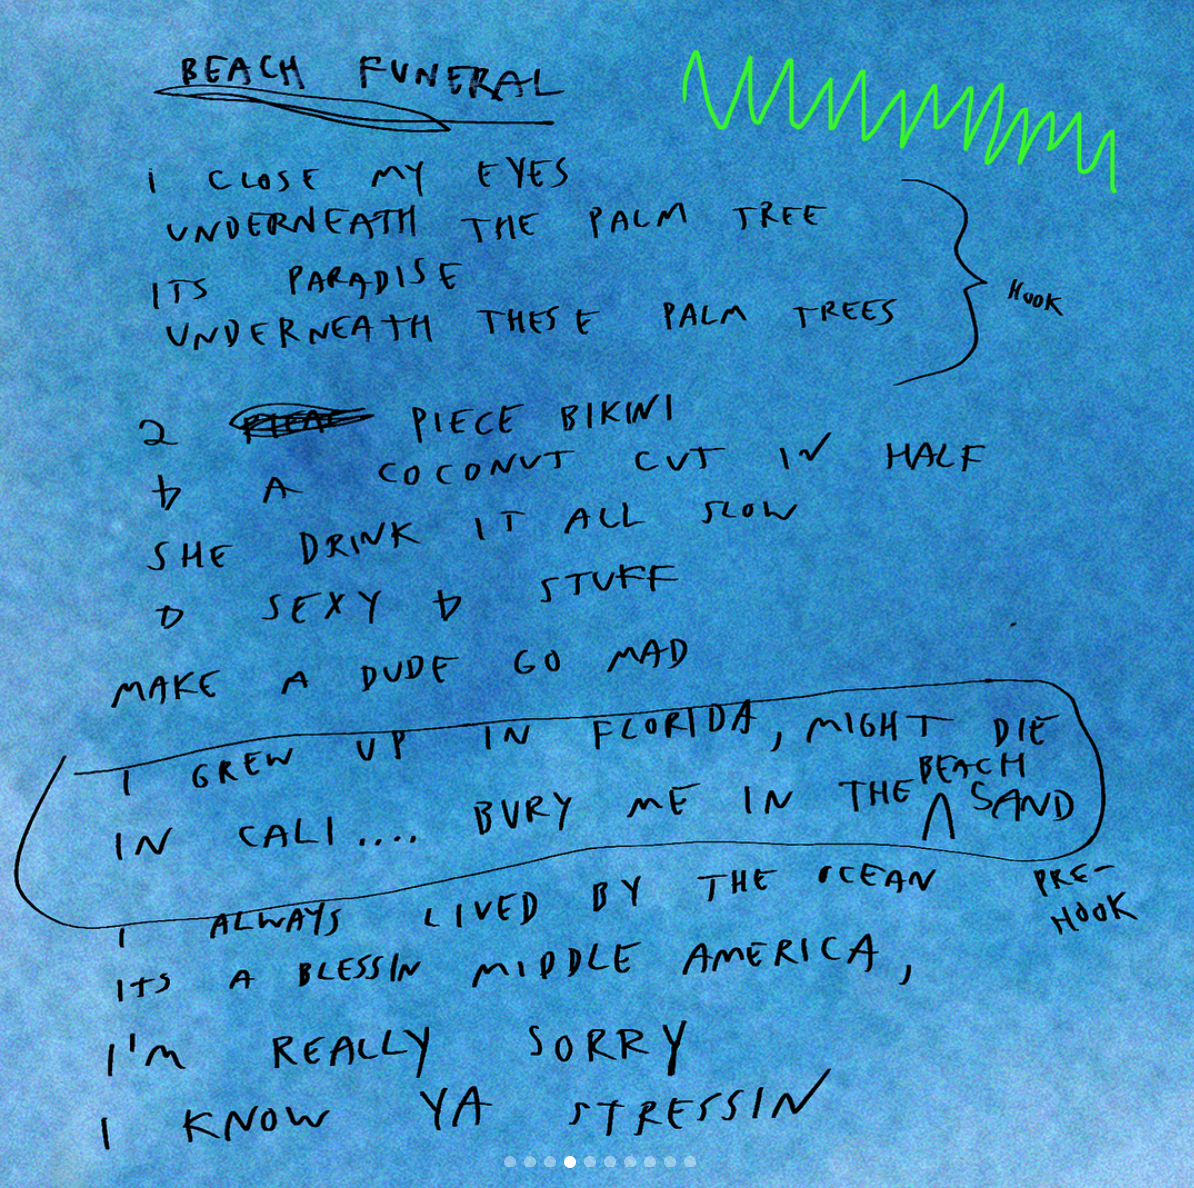 BEACH FUNERAL
i CLOSE MY EYES
UNDERNEATH THE PALM TREE
ITS PARADISE
UNDERNEATH THESE PALM TREES
HOOK
2 PIECE BIKINI
& A COCONUT CUT IN HALF
SHE DRINK IT ALL SLOW
& SEXY & STUFF
MAKE A DUDE GO MAD
I GREW UP IN FLORIDA, MIGHT DIE
IN CALI.... BURY ME IN THE BEACH SAND
PRE-
HOOK
I ALWAYS LIVED BY THE OCEAN
ITS A BLESSIN MIDDLE AMERICA,
I'M REALLY SORRY
I KNOW YA STRESSIN